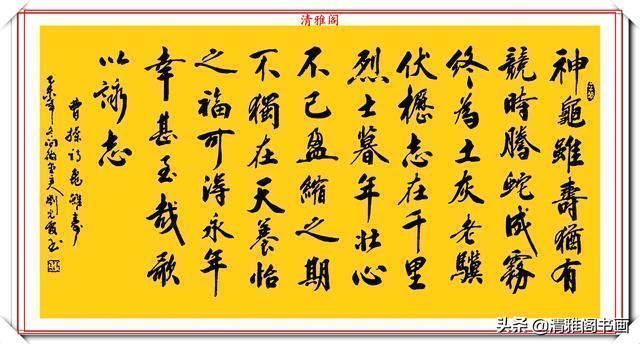 清雅阁
神龜雖壽猶有
競時騰蛇成霧
終為土灰老驥
伏櫪志在千里
烈士暮年壯心
不已盈縮之期
不獨在天養怡
之福可得永年
幸甚至哉歌
以詠志
曹操詩龜雖壽
乙未年冬月
头条 @清雅阁书画